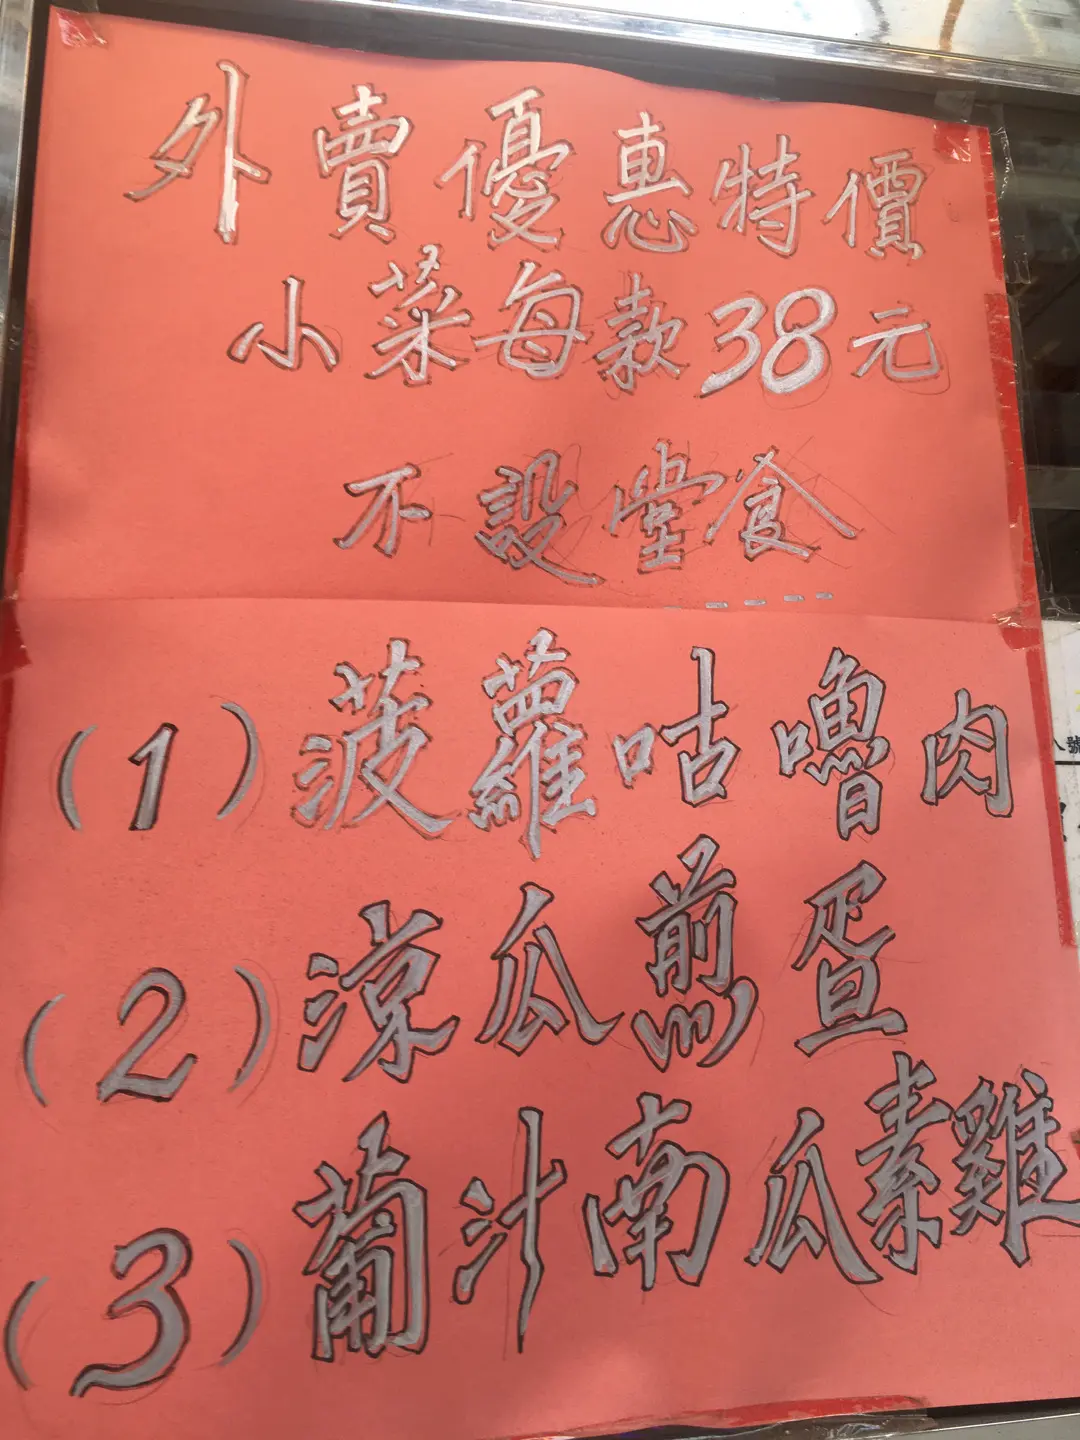 外賣優惠特價
小菜每款38元
不設堂食
(1)菠蘿咕嚕肉
(2)涼瓜煎蛋
(3)葡汁南瓜素雞
號